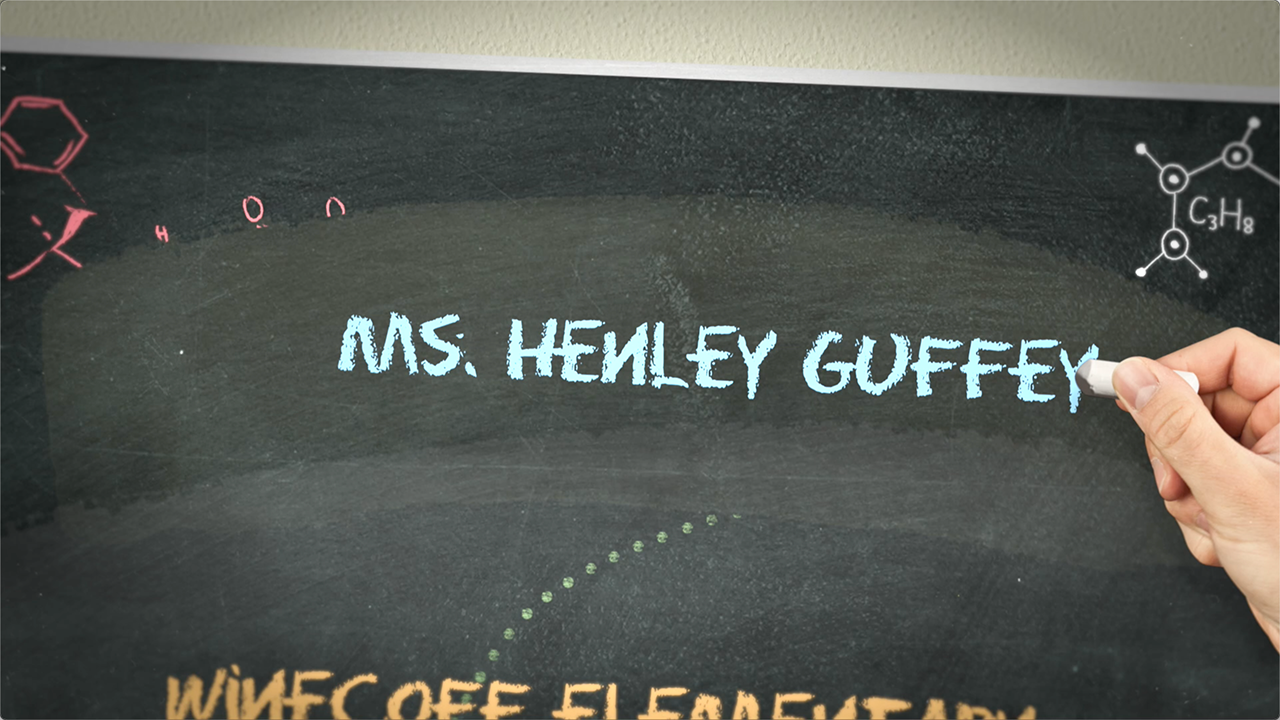 H O
C₃H₈
MS. HENLEY GUFFEY
WINECOFF ELEMENTARY